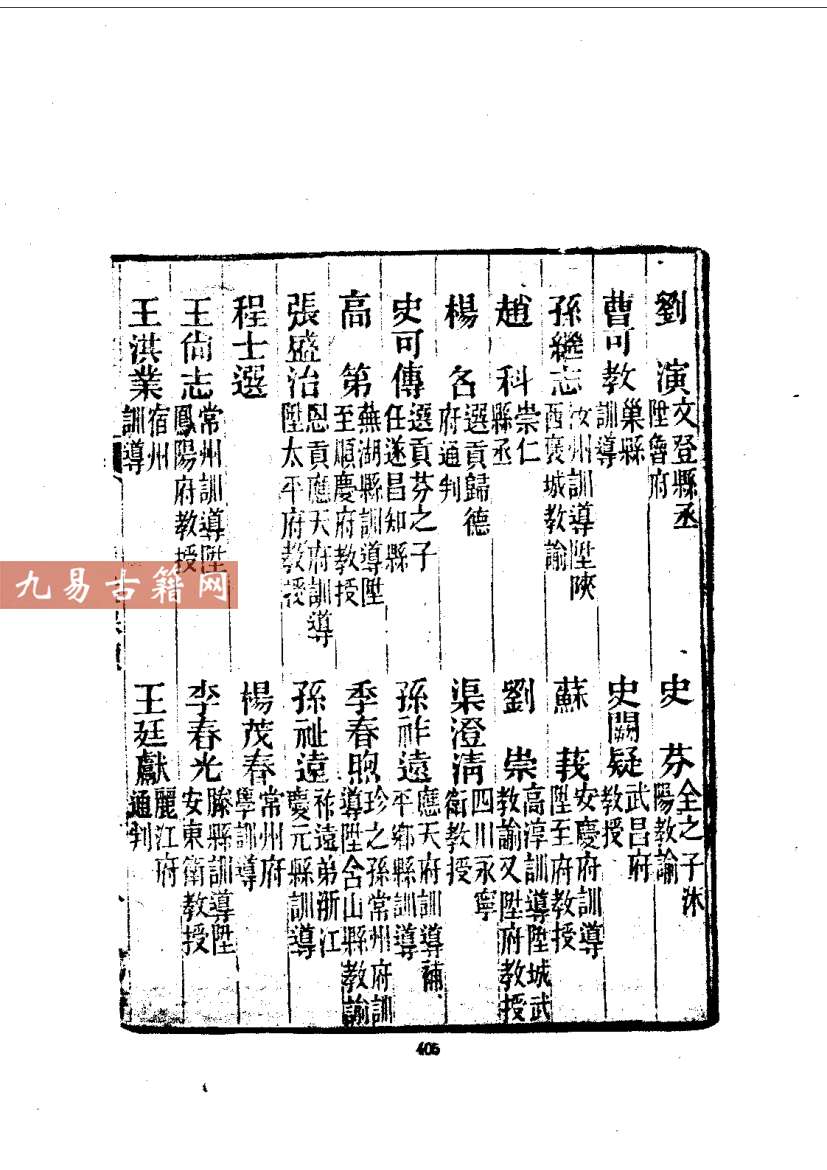 劉演 文登縣丞陞魯府
史芬 全之子沐陽教諭
曹可教 巢縣訓導
史闕疑 武昌府教授
孫繼志 汝州訓導陞陝西褒城教諭
蘇莪 安慶府訓導陞至府教授
趙科 崇仁縣丞
劉崇 高淳訓導陞城武教諭又陞府教授
楊名 選貢歸德府通判
渠澄清 四川永寧衛教授
史可傳 選貢芬之子任遂昌知縣
孫祚遠 應天府訓導補平鄉縣訓導
高第 蕪湖縣訓導陞至順慶府教授
季春煦 珍之孫常州府訓導陞含山縣教諭
張盛治 恩貢應天府訓導陞太平府教授
孫祉遠 祚遠弟浙江慶元縣訓導
程士選
楊茂春 常州府學訓導
王尚志 常州訓導陞鳳陽府教授
李春光 滕縣訓導陞安東衛教授
王洪業 宿州訓導
王廷獻 麗江府通判
九易古籍网
405